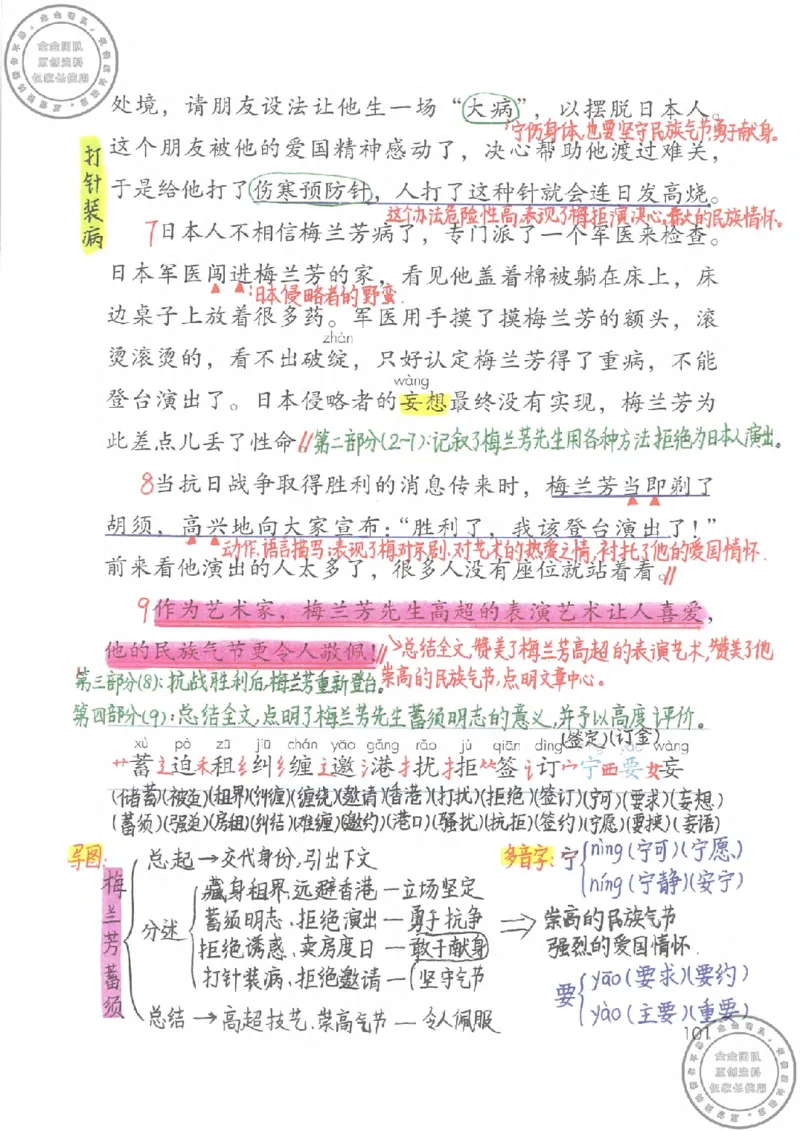 企企团队
原创资料
仅家长使用
处境，请朋友设法让他生一场“大病”，以摆脱日本人。
宁伤身体,也要坚守民族气节勇于献身。
打针装病
这个朋友被他的爱国精神感动了，决心帮助他渡过难关，
于是给他打了伤寒预防针，人打了这种针就会连日发高烧。
这个办法危险性高,表现了梅拒演决心,伟大的民族情怀。
7日本人不相信梅兰芳病了，专门派了一个军医来检查。
日本军医闯进梅兰芳的家，看见他盖着棉被躺在床上，床
:日本侵略者的野蛮.
边桌子上放着很多药。军医用手摸了摸梅兰芳的额头，滚
zhàn
烫滚烫的，看不出破绽，只好认定梅兰芳得了重病，不能
wàng
登台演出了。日本侵略者的妄想最终没有实现，梅兰芳为
此差点儿丢了性命。//第二部分(2~7):记叙了梅兰芳先生用各种方法拒绝为日本人演出。
8当抗日战争取得胜利的消息传来时，梅兰芳当即剃了
胡须，高兴地向大家宣布：“胜利了，我该登台演出了！”
动作,语言描写:表现了梅对京剧,对艺术的热爱之情,衬托了他的爱国情怀.
前来看他演出的人太多了，很多人没有座位就站着看。//
9作为艺术家，梅兰芳先生高超的表演艺术让人喜爱，
他的民族气节更令人敬佩！//→总结全文,赞美了梅兰芳高超的表演艺术,赞美了他
崇高的民族气节,点明文章中心。
第三部分(8):抗战胜利后,梅兰芳重新登台。
第四部分(9):总结全文,点明了梅兰芳先生蓄须明志的意义,并予以高度评价。
(签定)(订金)
xù pò zū jiū chán yāo gǎng rǎo jù qiān dìng níng yāo wàng
艹蓄辶迫禾租纟纠纟缠辶邀氵港扌扰扌拒⺮签讠订宀宁覀要女妄
(储蓄)(被迫)(租界)(纠缠)(缠绕)(邀请)(香港)(打扰)(拒绝)(签订)(宁可)(要求)(妄想)
(蓄须)(强迫)(房租)(纠结)(难缠)(邀约)(港口)(骚扰)(抗拒)(签约)(宁愿)(要挟)(妄语)
导图:
梅兰芳蓄须
总起→交代身份,引出下文
分述
藏身租界,远避香港—立场坚定
蓄须明志、拒绝演出—勇于抗争
拒绝诱惑、卖房度日—敢于献身
打针装病、拒绝邀请—坚守气节
⇒崇高的民族气节
强烈的爱国情怀.
总结→高超技艺、崇高气节—令人佩服
多音字:
宁
nìng(宁可)(宁愿)
níng(宁静)(安宁)
要
yāo(要求)(要约)
yào(主要)(重要)
101
企企团队
原创资料
仅家长使用